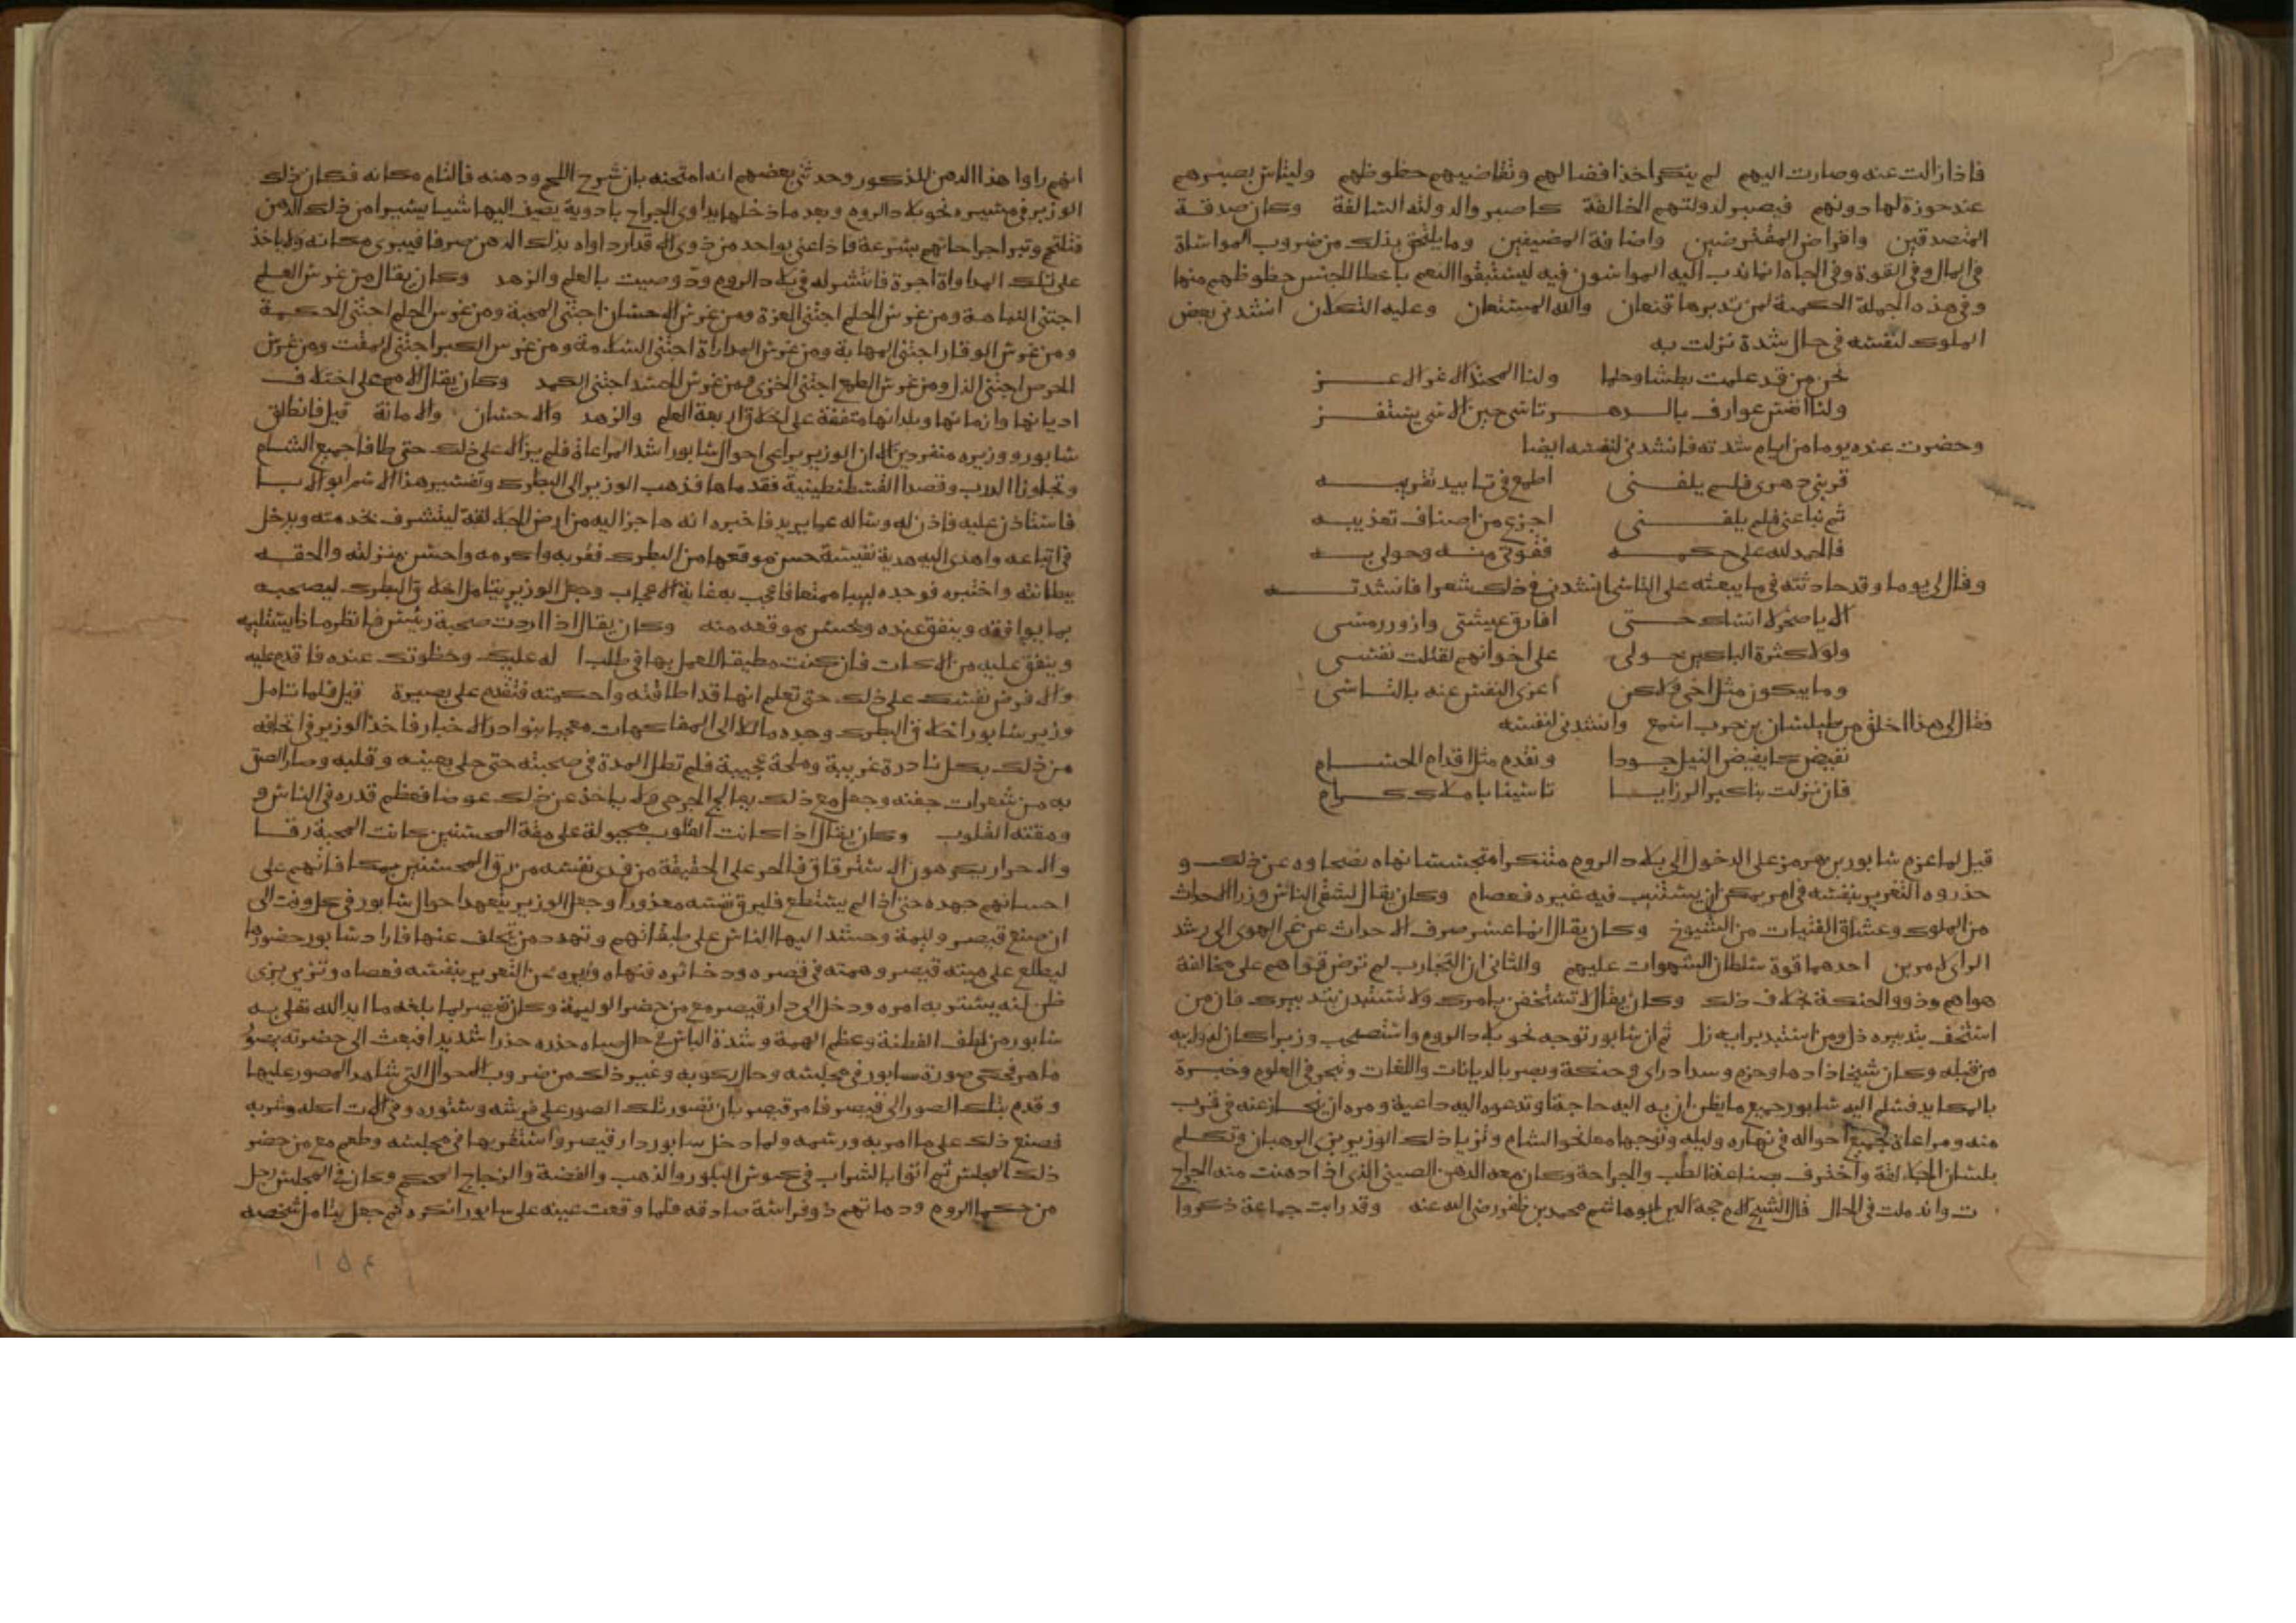 فاذا زالت عنه وصارت اليهم لم ينكر اخذ افضالهم وتقاضيهم حظوظهم وليتاس بصبرهم
عند حوزة لها دونهم فيصبر لدولتهم الخالفة كما صبروا لدولته السالفة وكان صدقة
المتصدقين واقراض المقترضين واضافة المضيفين وما يلتحق بذلك من ضروب المواساة
في المال وفي القوة وفي الجاه انما ندب اليه المواسون فيه ليستبقوا النعم باعطا الجنس حظوظهم منها
وفي هذه الجملة الحكمية لمن تدبرها قنعان والله المستعان وعليه التكلان انشدني بعض
الملوك لنفسه في حال شدة نزلت به
نحن من قد علمت بطشا وحلما ولنا المحتد الاغر الاعز
ولنا انفس عوارف بالدهر تاسى حين الاسى يستفز
وحضرت عنده يوما من ايام شدته فانشدني لنفسه ايضا
قربني دهري فلم يلفني اطمع في تابيد تقريبه
ثم نبا عني فلم يلفني اجزع من اصناف تعذيبه
فالحمد لله على حكمه فقوتي منه وحولي به
وقال لي يوما وقد حادثته في ما يبعثه على التاسي انشدني في ذلك شعرا فانشدته
الا يا صخر لا انساك حتى افارق عيشتي وازور رمسي
ولولا كثرة الباكين حولي على اخوانهم لقتلت نفسي
وما يبكون مثل اخي ولكن اعزي النفس عنه بالتاسي
فقال لي هذا اخلق من طيلسان بن حرب اسمع وانشدني لنفسه
نفيض كما يفيض النيل جودا ونقدم مثل اقدام الحسام
فان نزلت بنا كبر الرزايا تاسينا باملاك كرام
قيل لما عزم سابور بن هرمز على الدخول الى بلاد الروم متنكرا متجسسا نهاه نصحاوه عن ذلك و
حذروه التغرير بنفسه في امر يمكن ان يستنيب فيه غيره فعصاهم وكان يقال اشقى الناس وزرا الاحداث
من الملوك وعشاق الفتيات من الشيوخ وكان يقال انما عسر صرف الاحداث عن غي الهوى الى رشد
الراي لامرين احدهما قوة سلطان الشهوات عليهم والثاني ان التجارب لم ترض قواهم على مخالفة
هواهم وذوو الحنكة بخلاف ذلك وكان يقال لا تستخفن بامرك ولا تستبدن بتدبيرك فان من
استخف بتدبيره ذل ومن استبد برايه زل ثم ان سابور توجه نحو بلاد الروم واستصحب وزيرا كان له ولابيه
من قبله وكان شيخا ذا دها وحزم وسداد راي وحنكة وبصر بالديانات واللغات وتبحر في العلوم وخبرة
بالمكايد فسلم اليه سابور جميع ما يظن ان به اليه حاجة او تدعوه اليه داعية وامره ان ينحاز عنه في قرب
منه ومراعاة لجميع احواله في نهاره وليله وتوجها معا نحو الشام وتزيا ذلك الوزير بزي الرهبان وتكلم
بلسان الجلالقة واحترف بصناعة الطب والجراحة وكان معه الدهن الصيني الذي اذا دهنت منه الجراح
ت واندملت في الحال قال الشيخ الامام حجة الدين ابو هاشم محمد بن ظفر رضي الله عنه وقد رايت جماعة ذكروا
انهم راوا هذا الدهن المذكور وحدثني بعضهم انه امتحنه بان شرح اللحم ودهنه فالتام مكانه فكان ذلك
الوزير في مسيره نحو بلاد الروم وبعد ما دخلها يداوي الجراح بادوية يضيف اليها شيا يسيرا من ذلك الدهن
فتلتحم وتبرا جراحاتهم بسرعة فاذا عني بواحد من ذوي الاقدار داواه بذلك الدهن صرفا فيبرى مكانه ولا ياخذ
على تلك المداواة اجرة فانتشر له في بلاد الروم ود وصيت بالعلم والزهد وكان يقال من غرس العلم
اجتنى النباهة ومن غرس الحلم اجتنى العزة ومن غرس الاحسان اجتنى المحبة ومن غرس الحلم اجتنى الحكمة
ومن غرس الوقار اجتنى المهابة ومن غرس المداراة اجتنى السلامة ومن غرس الكبر اجتنى المقت ومن غرس
الحرص اجتنى الذل ومن غرس الطمع اجتنى الخزي ومن غرس الحسد اجتنى الكمد وكان يقال الامم على اختلاف
اديانها وازمانها وبلدانها متفقة على اخلاق اربعة العلم والزهد والاحسان والامانة قيل فانطلق
سابور ووزيره منفردين الا ان الوزير يراعي احوال سابور اشد المراعاة فلم يزالا على ذلك حتى طافا جميع الشام
وتجاوزا الدرب وقصدا القسطنطينية فقدماها فذهب الوزير الى البطرك وتفسير هذا الاسم ابو الابا
فاستاذن عليه فاذن له وساله عما يريد فاخبره انه هاجر اليه من ارض الجلالقة ليتشرف بخدمته ويدخل
في اتباعه واهدى اليه هدية نفيسة حسن موقعها من البطرك فقربه واكرمه واحسن منزلته والحقه
ببطانته واختبره فوجده لبيبا ممتعا فاعجب به غاية الاعجاب وجعل الوزير يتامل اخلاق البطرك ليصحبه
بما يوافقه وينفق عنده ويحسن موقعه منه وكان يقال اذا اردت صحبة رئيس فانظر ماذا يستليه
وينفق عليه من الادات فان كنت مطيقا للعمل بها في طلب اله عليك وحظوتك عنده فاقدم عليه
والا فرض نفسك على ذلك حتى تعلم انها قد اطاقته واحكمته فتقدم على بصيرة قيل فلما تامل
وزير سابور اخلاق البطرك وجده مائلا الى المفاكهات معجبا بنوادر الاخبار فاخذ الوزير في اتحافه
من ذلك بكل نادرة غريبة وملحة عجيبة فلم تطل المدة في صحبته حتى حلي بعينه وقلبه وصار الصق
به من شعرات جفنه وجعل مع ذلك يعالج الجرحى ولا ياخذ عن ذلك عوضا فعظم قدره في الناس و
ومقته القلوب وكان يقال اذا كانت القلوب مجبولة على مقة المحسنين كانت المحبة رقا
والاحرار يكرهون الاسترقاق فالحر على الحقيقة من فدى نفسه من رق المحسنين بمكافاتهم على
احسانهم جهده حتى اذا لم يستطع فليرق نفسه معذورا وجعل الوزير يتعهد احوال سابور في كل وقت الى
ان صنع قيصر وليمة وحشد اليها الناس على طبقاتهم وتهدد من تخلف عنها فاراد سابور حضورها
ليطلع على هيئة قيصر وهمته في قصره وذخائره فنهاه وزيره عن التغرير بنفسه فعصاه وتزيى بزي
ظن انه يستتر به امره ودخل الى دار قيصر مع من حضر الوليمة وكان قيصر لما بلغه ما ايد الله تعالى به
سابور من لطف الفطنة وعظم الهمة وشدة الباس في حال صباه حذره حذرا شديدا فبعث الى حضرته بمصور
ماهر فحكى صورة سابور في مجلسه وحال ركوبه وغير ذلك من ضروب الاحوال التي شاهده المصور عليها
وقدم بتلك الصور الى قيصر فامر قيصر بان تصور تلك الصور على فرشه وستوره وفي الات اكله وشربه
فصنع ذلك على ما امر به ورسمه ولما دخل سابور دار قيصر واستقر بها في مجلسه وطعم مع من حضر
ذلك المجلس ثم اتوا بالشراب في كووس البلور والذهب والفضة والزجاج المحكم وكان في المجلس رجل
من حكما الروم ودهاتهم ذو فراسة صادقة فلما وقعت عينه على سابور انكره ثم جعل يتامل شخصه
١٥٤